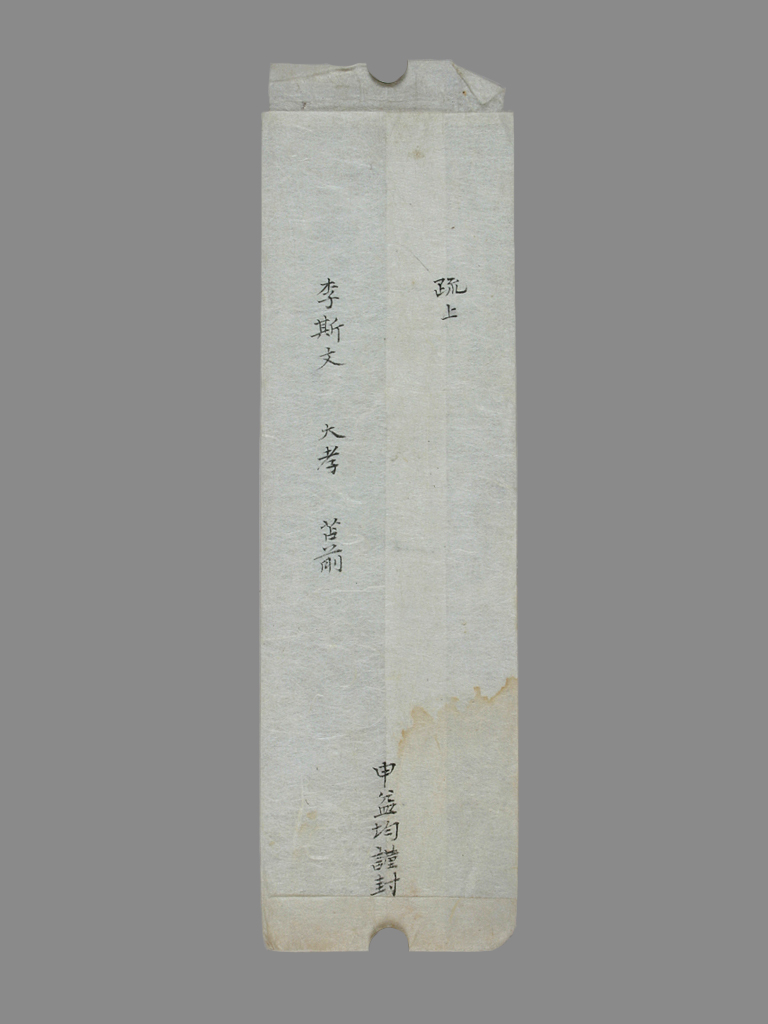 疏上
李斯文 大孝 苫前
申益均謹封